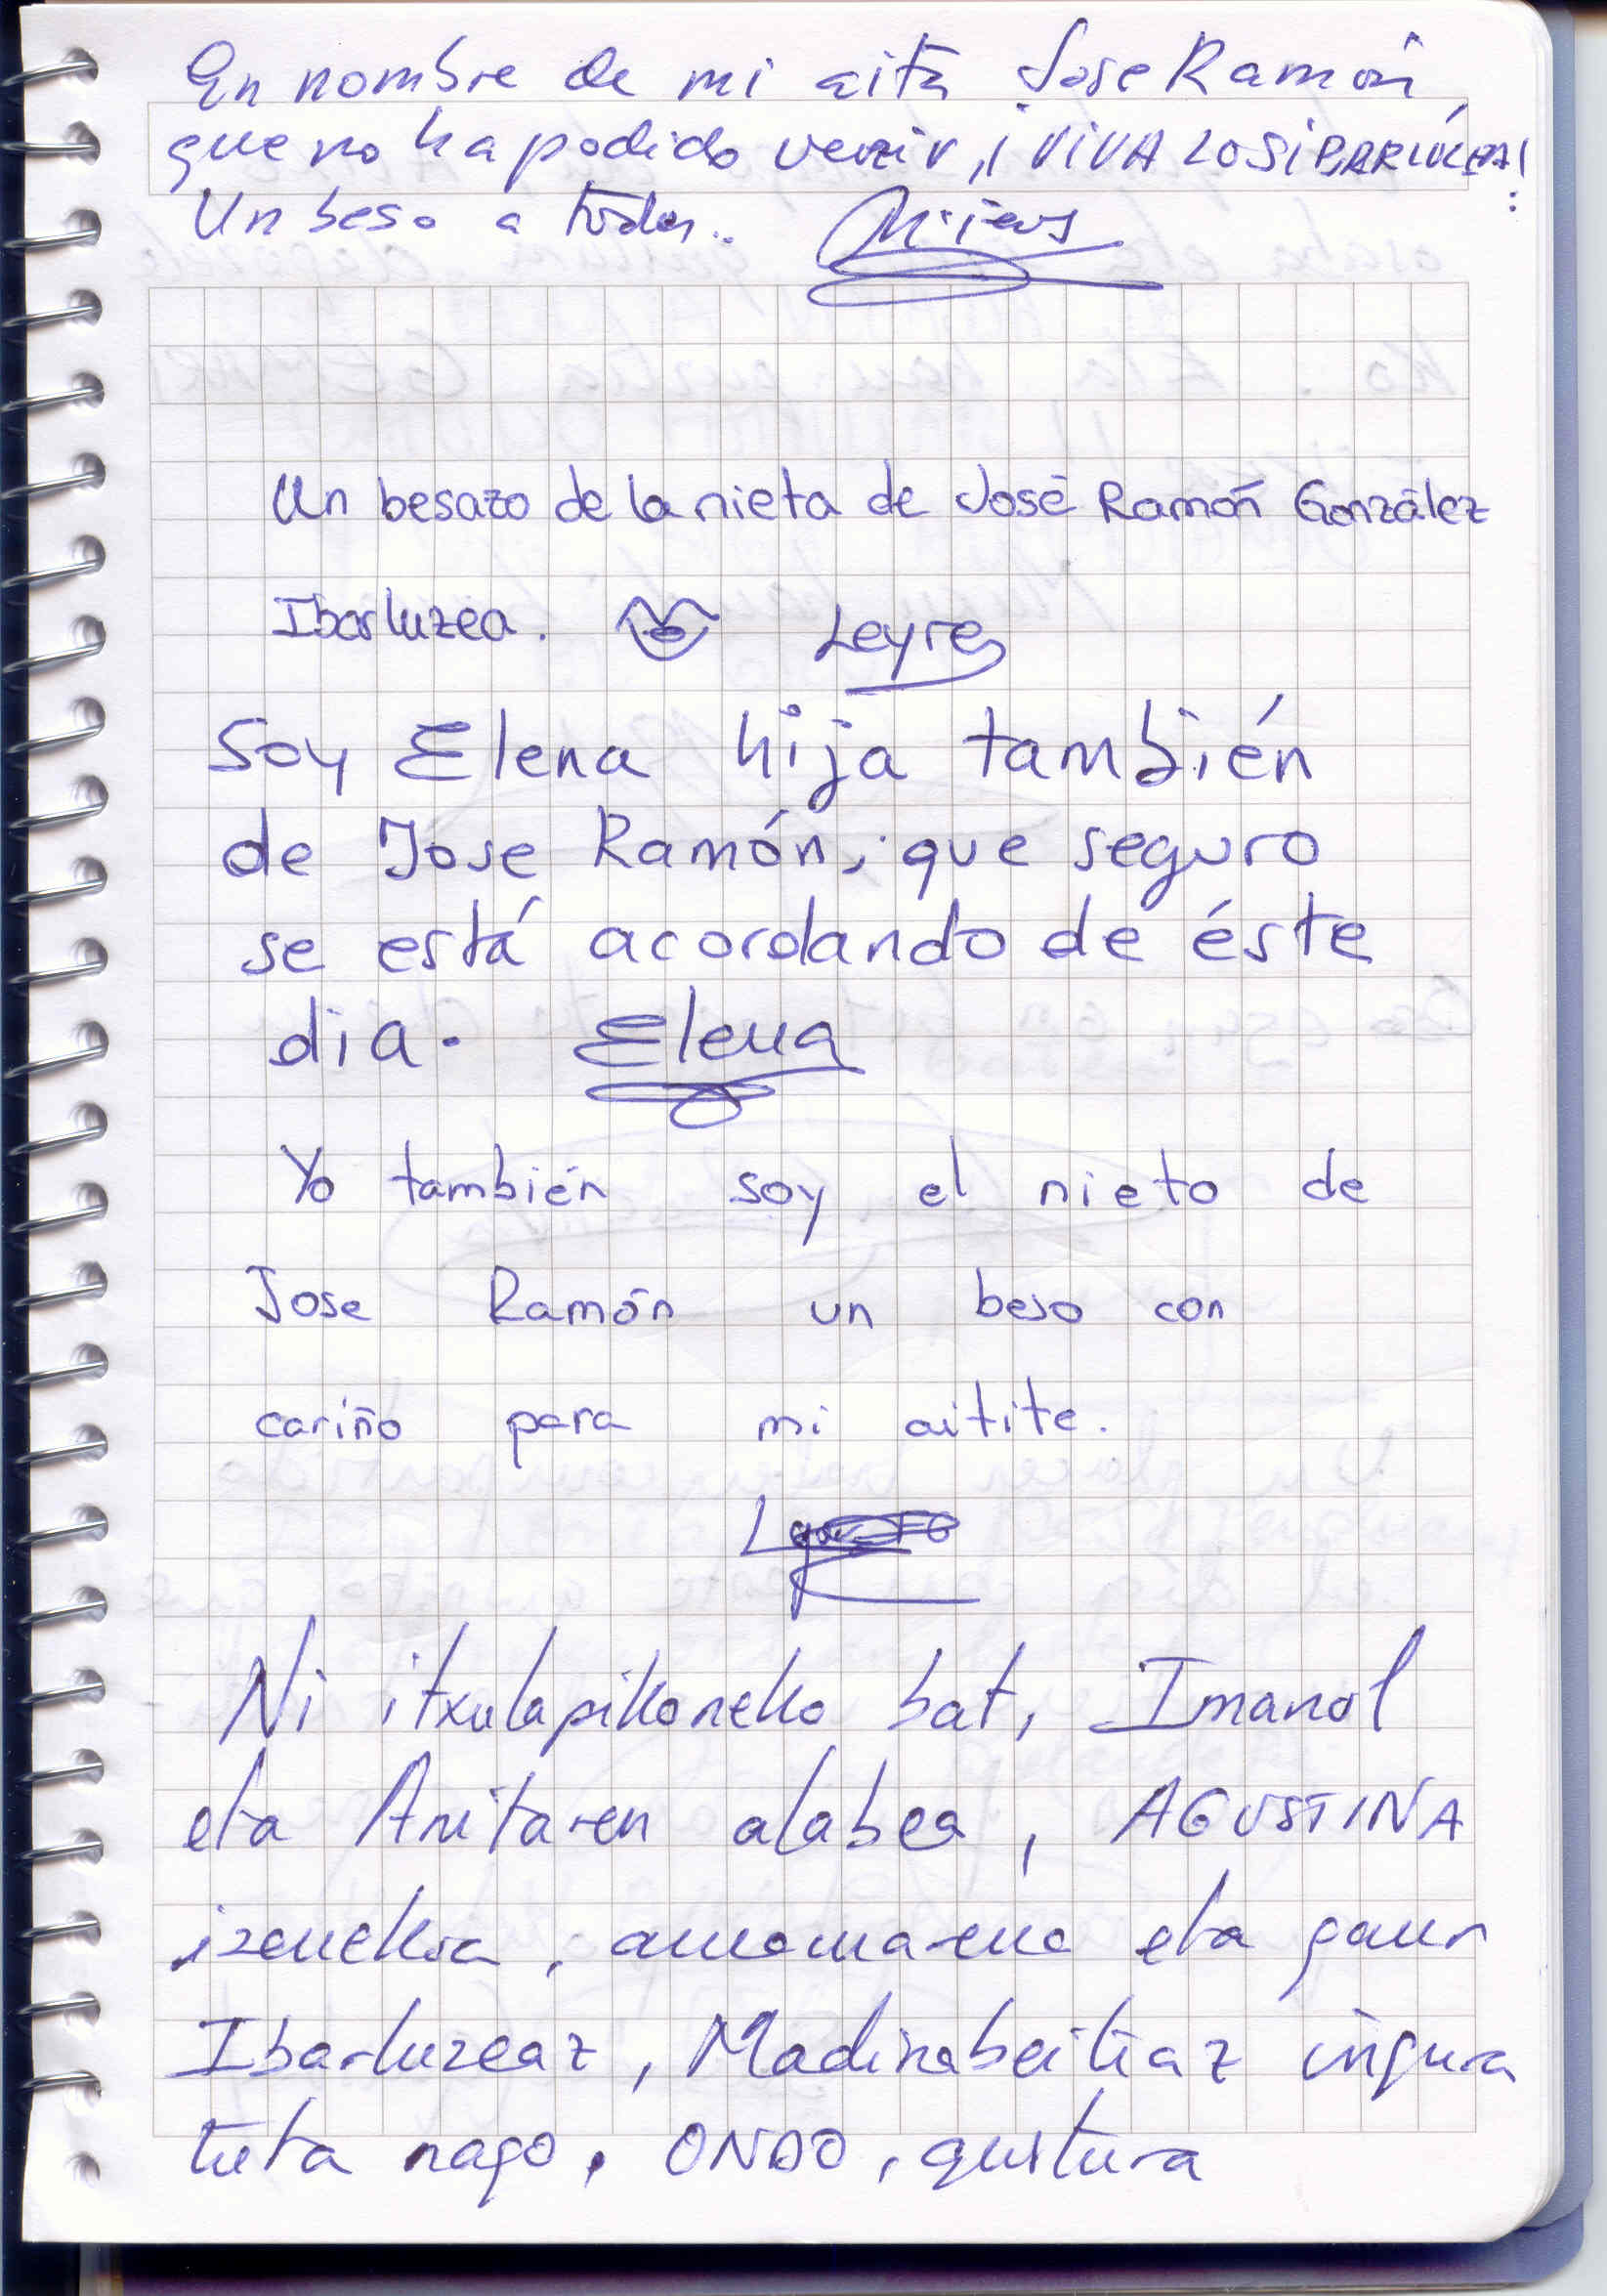 En nombre de mi aita Jose Ramón,
que no ha podido venir, ¡VIVA LOS IBARLUZEA!
Un beso a todos.
Un besazo de la nieta de José Ramón González
Ibarluzea. Leyre
Soy Elena hija también
de Jose Ramón, que seguro
se está acordando de éste
dia. Elena
Yo también soy el nieto de
Jose Ramón un beso con
cariño para mi aitite.
Ni itxulapikoneko bat, Imanol
eta Anitaren alabea, AGUSTINA
izenekoa, amamarena eta gaur
Ibarluzeaz, Madinabeitiaz ingura
tuta nago, ONDO, gustura